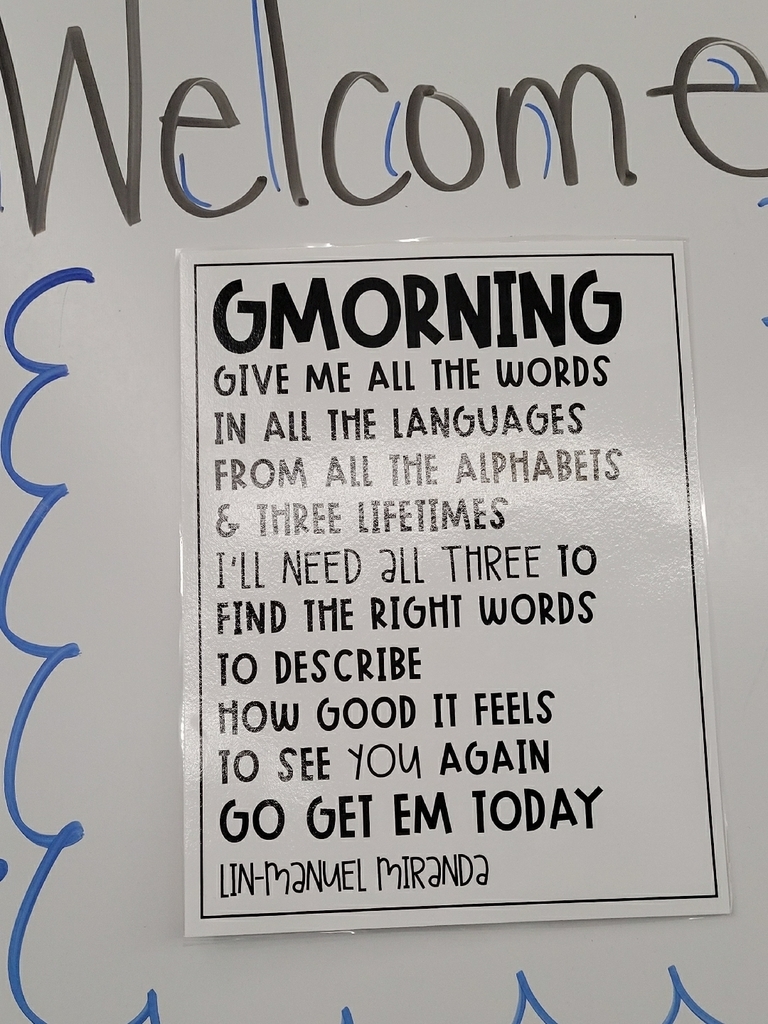 Welcome
GMORNING
GIVE ME ALL THE WORDS
IN ALL THE LANGUAGES
FROM ALL THE ALPHABETS
& THREE LIFETIMES
I'LL NEED aLL THREE TO
FIND THE RIGHT WORDS
TO DESCRIBE
HOW GOOD IT FEELS
TO SEE YOU AGAIN
GO GET EM TODAY
LIN-MaNUEL MIRaNDa